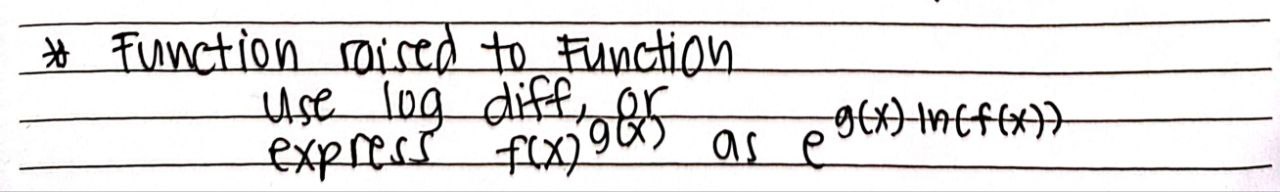 * Function raised to Function
Use log diff, or
express f(x)^g(x) as e^g(x) ln(f(x))